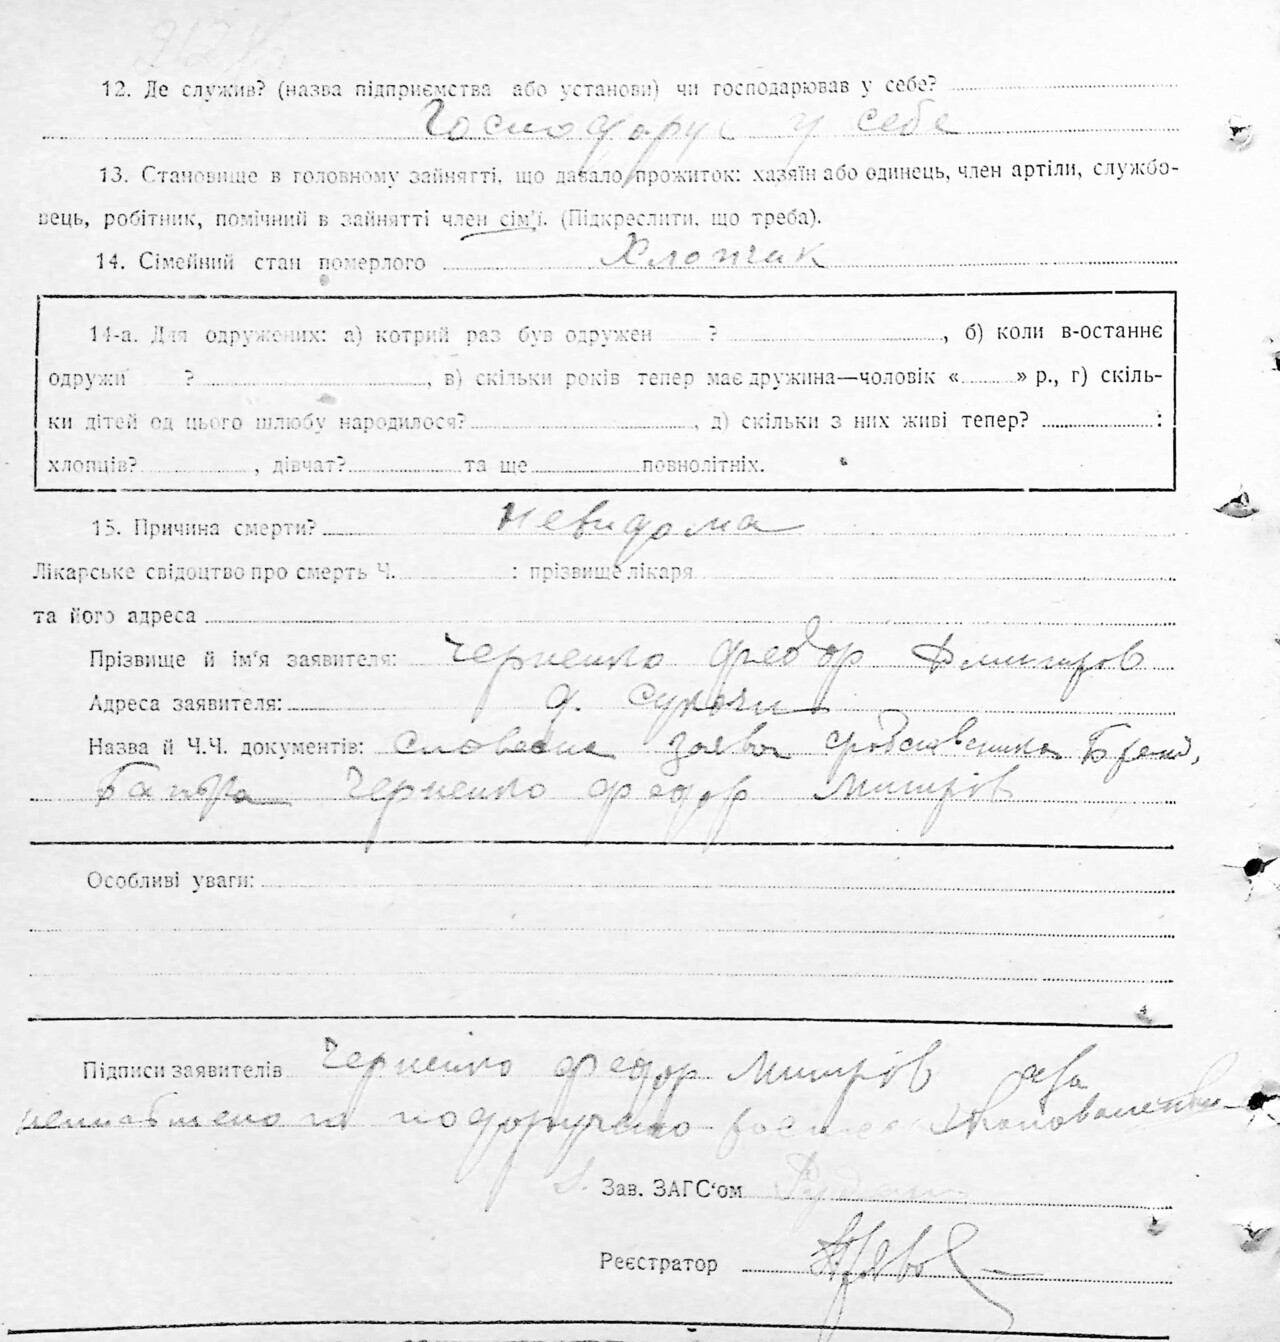 12. Де служив? (назва підприємства або установи) чи господарював у себе?
Господарує у себе
13. Становище в головному зайнятті, що давало прожиток: хазяїн або одинець, член артілі, службо-
вець, робітник, помічний в зайнятті член сім'ї. (Підкреслити, що треба).
14. Сімейний стан померлого Хлопчик
14-а. Для одружених: а) котрий раз був одружен ? , б) коли в-останнє
одружи ? , в) скільки років тепер має дружина—чоловік « » р., г) скіль-
ки дітей од цього шлюбу народилося? , д) скільки з них живі тепер? :
хлопців? , дівчат? та ще повнолітніх.
15. Причина смерти? невидома
Лікарське свідоцтво про смерть Ч. : прізвище лікаря
та його адреса
Прізвище й ім'я заявителя: Черненко Федор Дмитров
Адреса заявителя:
Назва й Ч.Ч. документів: словесна заява
Батька Черненко Федор Митрів
Особливі уваги:
Підписи заявителів Черненко Федор Митрів
Зав. ЗАГС'ом
Реєстратор